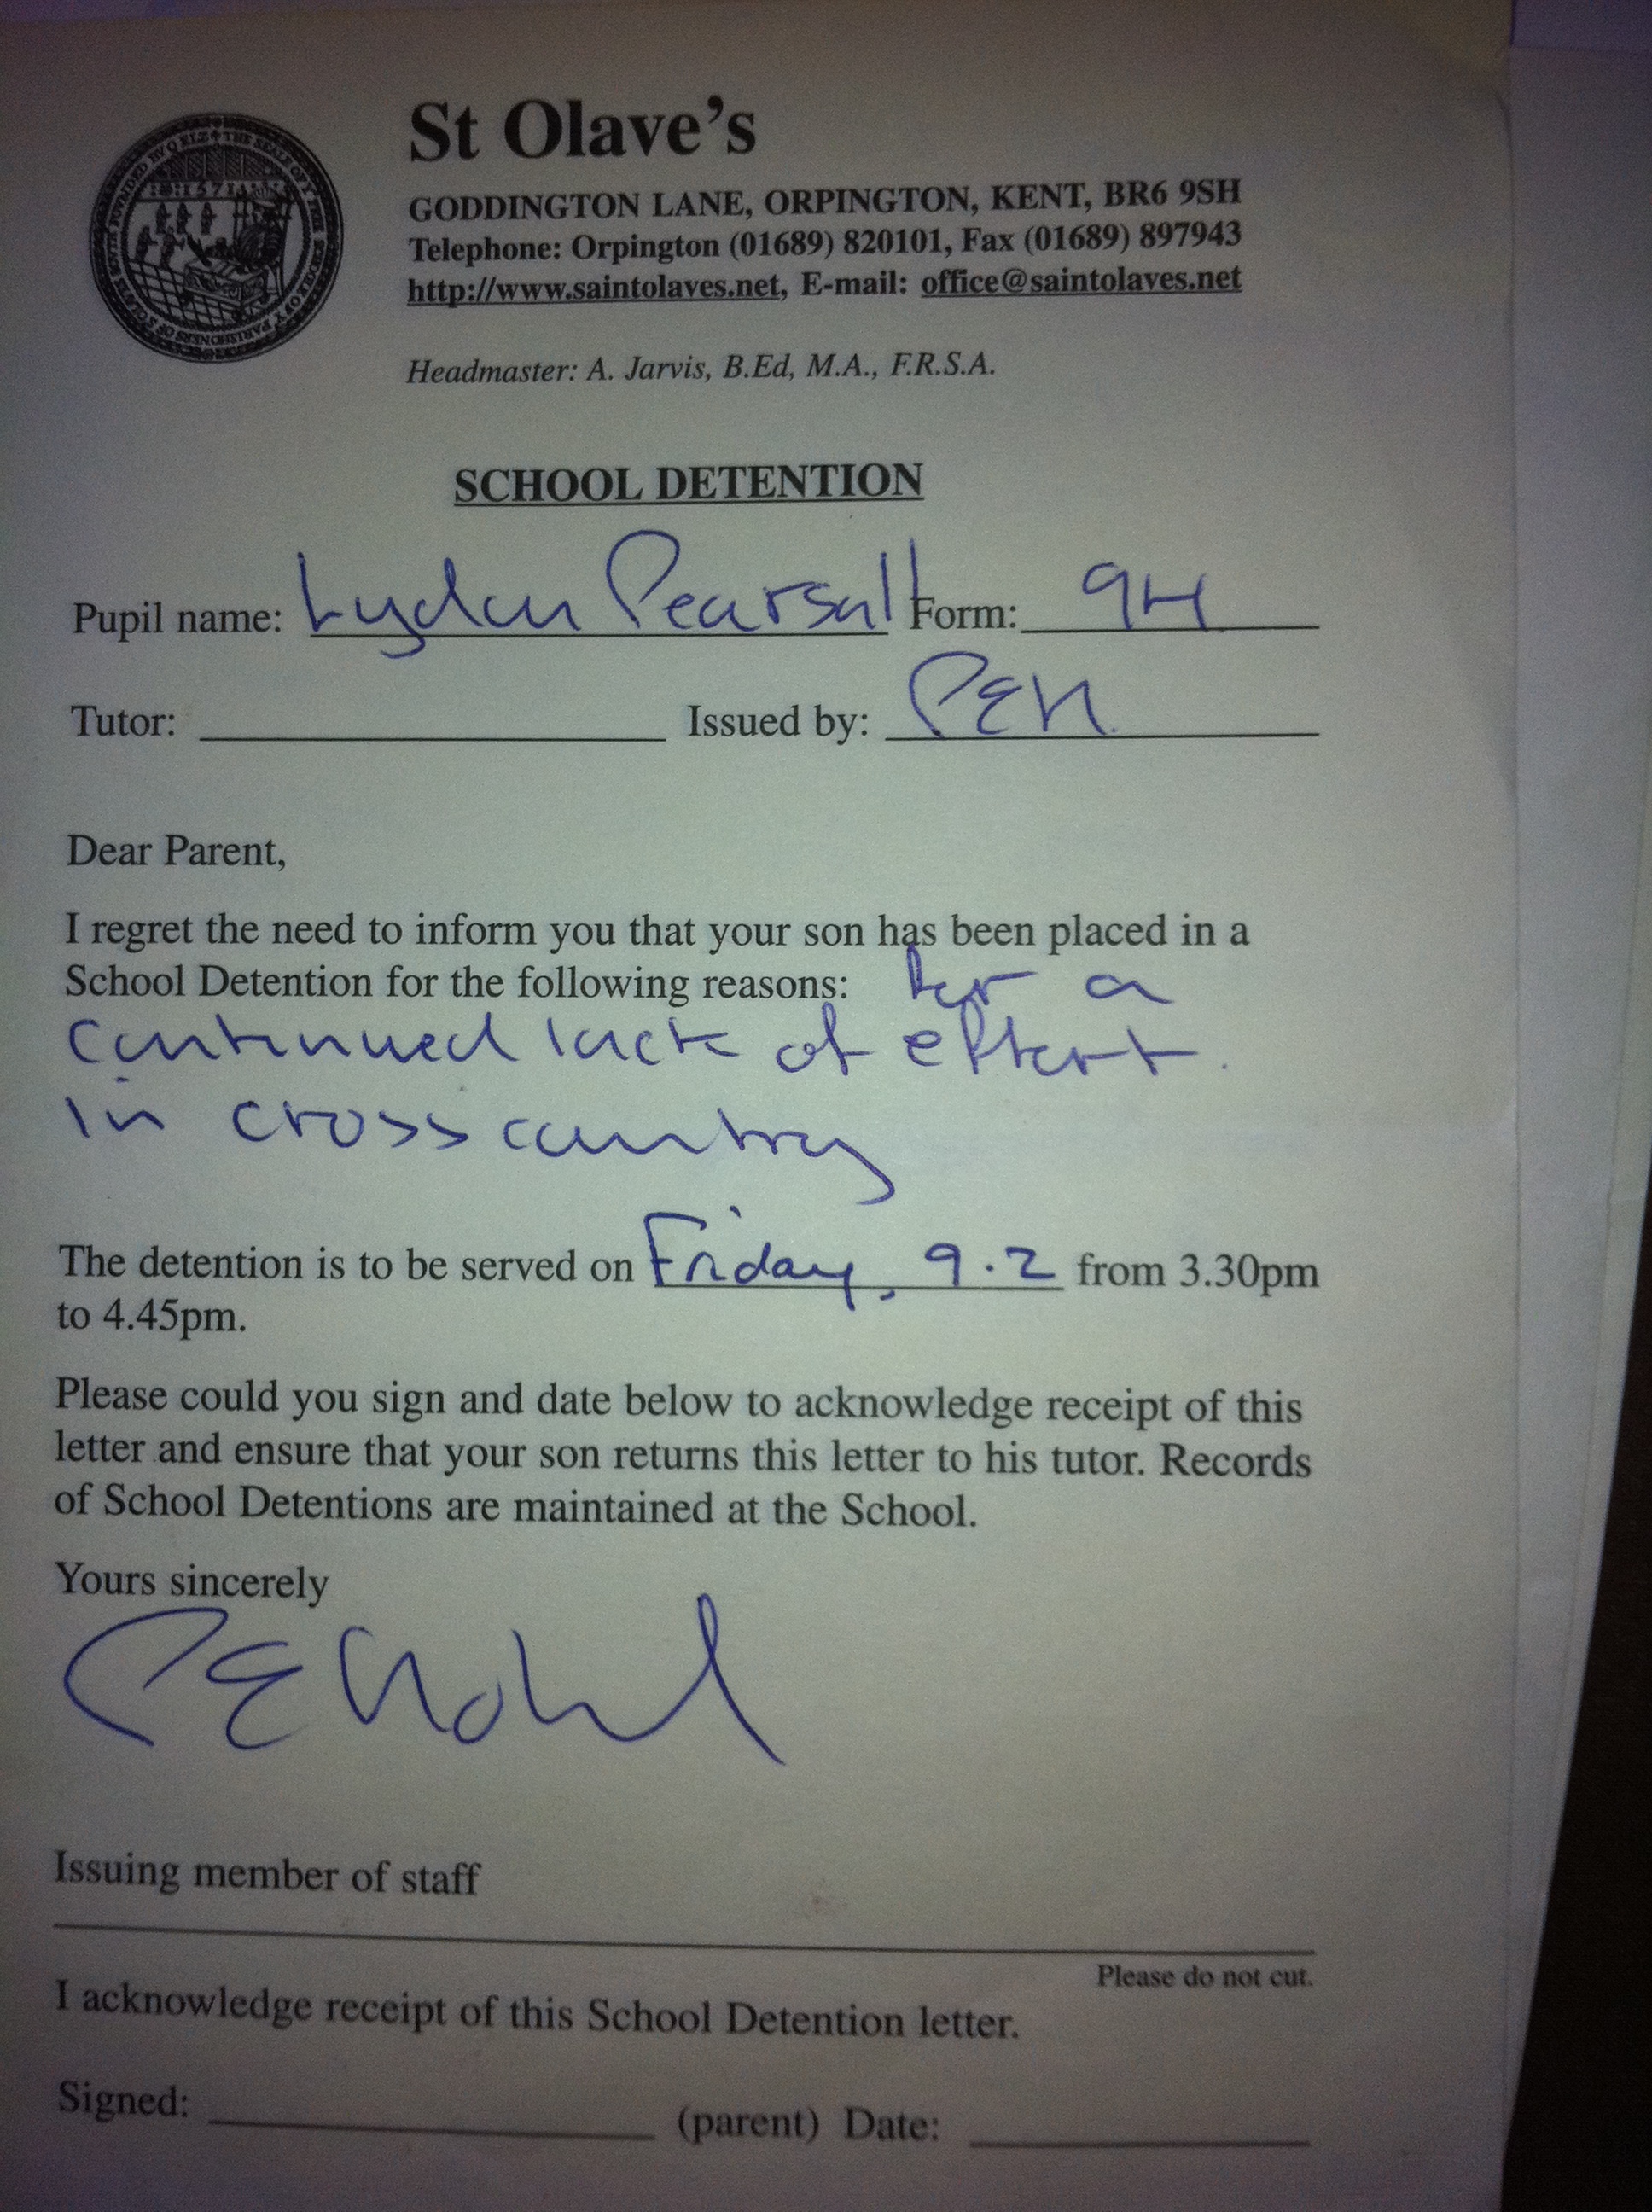 St Olave's
GODDINGTON LANE, ORPINGTON, KENT, BR6 9SH
Telephone: Orpington (01689) 820101, Fax (01689) 897943
http://www.saintolaves.net, E-mail: office@saintolaves.net
Headmaster: A. Jarvis, B.Ed, M.A., F.R.S.A.
1571
SCHOOL DETENTION
Pupil name: Lydan Pearsall Form: 9H
Tutor: Issued by: PEN
Dear Parent,
I regret the need to inform you that your son has been placed in a
School Detention for the following reasons: for a
continued lack of effort.
in cross country
The detention is to be served on Friday, 9.2 from 3.30pm
to 4.45pm.
Please could you sign and date below to acknowledge receipt of this
letter and ensure that your son returns this letter to his tutor. Records
of School Detentions are maintained at the School.
Yours sincerely
Issuing member of staff
Please do not cut.
I acknowledge receipt of this School Detention letter.
Signed: (parent) Date: